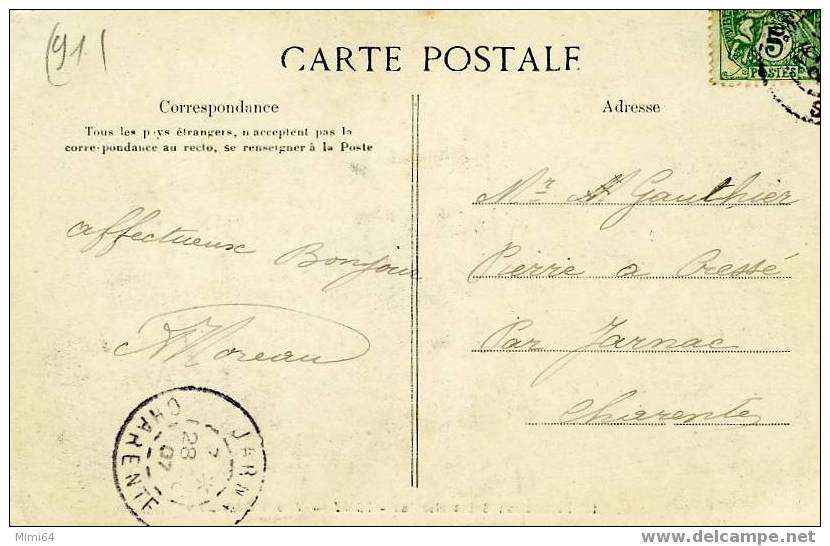 (91)
CARTE POSTALE
5
POSTES
Correspondance
Tous les pays étrangers, n acceptent pas la
corre-pondance au recto, se renseigner à la Poste
Adresse
Affectueux Bonjour
Moreau
Mr Gauthier
Pierre à Cressé
Par Jarnac
Charente
JARN
CHARENTE
28
07
Mimi64
delcampe.net